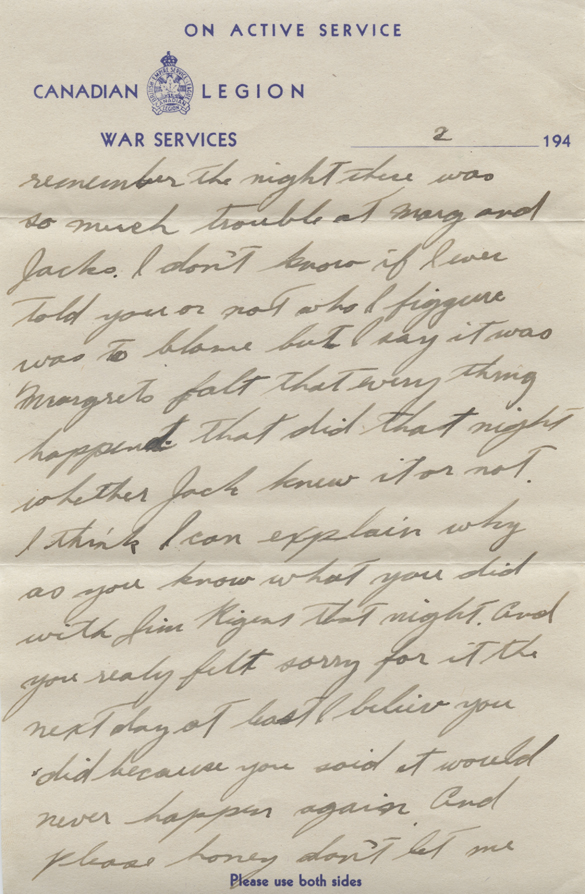 ON ACTIVE SERVICE
CANADIAN LEGION
WAR SERVICES 2 194
remember the night there was
so much trouble at Marg and
Jacks. I don't know if I ever
told you or not who I figgure
was to blame but I say it was
Margrets falt that every thing
happend that did that night
whether Jack knew it or not.
I think I can explain why
as you know what you did
with Jim Rigens that night. And
you realy felt sorry for it the
next day at least I believ you
did because you said it would
never happen again. And
please honey don't let me
Please use both sides